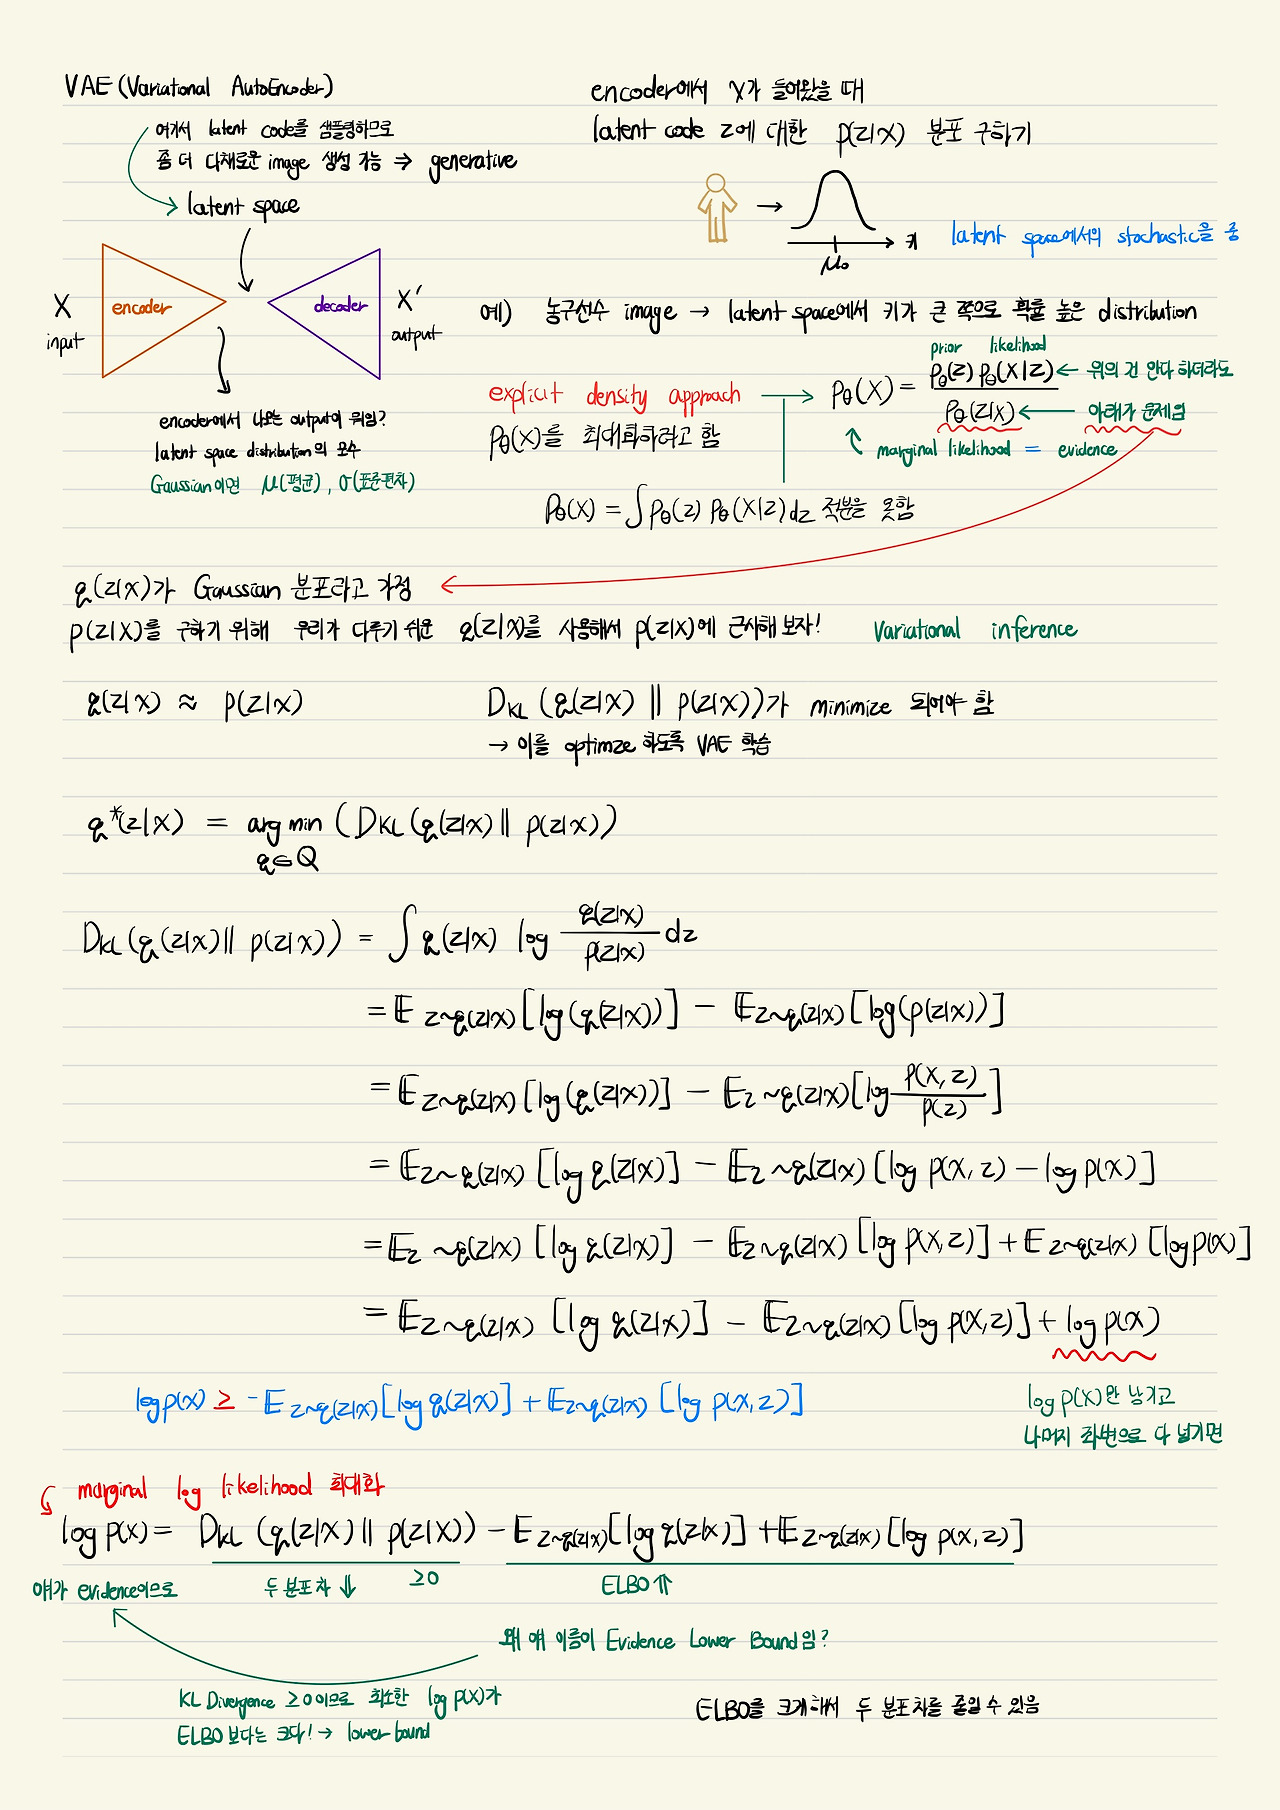 VAE (Variational AutoEncoder)
여기서 latent code를 샘플링하므로
좀 더 다채로운 image 생성 가능 ⇒ generative
latent space
encoder
decoder
X
input
X′
output
encoder에서 나오는 output이 뭐임?
latent space distribution의 모수
Gaussian이면 μ(평균), σ(표준편차)
encoder에서 X가 들어왔을 때
latent code z에 대한 p(z|x) 분포 구하기
→ 키
μ₀
latent space에서의 stochastic을 줌
예) 농구선수 image → latent space에서 키가 큰 쪽으로 확률 높은 distribution
explicit density approach →
pθ(x)를 최대화하려고 함
prior likelihood
pθ(X) = pθ(z) pθ(X|Z) / pθ(z|x)
← 위의 건 안다 하더라도
← 아래가 문제임
marginal likelihood = evidence
pθ(x) = ∫ pθ(z) pθ(x|z) dz 적분을 못함
q(z|x)가 Gaussian 분포라고 가정
p(z|x)를 구하기 위해 우리가 다루기 쉬운 q(z|x)를 사용해서 p(z|x)에 근사해 보자! Variational inference
q(z|x) ≈ p(z|x)
D_KL (q(z|x) || p(z|x))가 minimize 되어야 함
→ 이를 optimze 하도록 VAE 학습
q*(z|x) = arg min (D_KL (q(z|x) || p(z|x))
q∈Q
D_KL (q(z|x) || p(z|x)) = ∫ q(z|x) log q(z|x) / p(z|x) dz
= E z~q(z|x) [log (q(z|x))] − E z~q(z|x) [log (p(z|x))]
= E z~q(z|x) [log (q(z|x))] − E z~q(z|x) [log p(x, z) / p(z)]
= E z~q(z|x) [log q(z|x)] − E z~q(z|x) [log p(x, z) − log p(x)]
= E z~q(z|x) [log q(z|x)] − E z~q(z|x) [log p(x, z)] + E z~q(z|x) [log p(x)]
= E z~q(z|x) [log q(z|x)] − E z~q(z|x) [log p(x, z)] + log p(x)
log p(x) ≥ − E z~q(z|x) [log q(z|x)] + E z~q(z|x) [log p(x, z)]
log p(x)만 남기고
나머지 좌변으로 다 넘기면
marginal log likelihood 최대화
log p(x) = D_KL (q(z|x) || p(z|x)) − E z~q(z|x) [log q(z|x)] + E z~q(z|x) [log p(x, z)]
얘가 evidence이므로
두 분포 차 ⇓ ≥0
ELBO ⇑
왜 얘 이름이 Evidence Lower Bound임?
KL Divergence ≥ 0 이므로 최소한 log p(x)가
ELBO 보다는 크다! → lower bound
ELBO를 크게 해서 두 분포 차를 줄일 수 있음